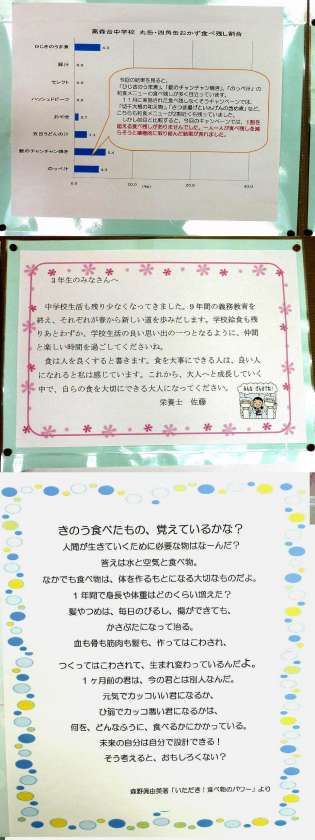 高森台中学校 丸缶・四角缶おかず食べ残し割合
ひじきのうま煮
豚汁
セレクト
ハッシュドビーフ
おべき
五目うどんの汁
鮭のチャンチャン焼き
のっぺ汁
0.0
10.0
20.0
30.0
40.0
今回の結果を見ると、
「ひじきのうま煮」、「鮭のチャンチャン焼き」、「のっぺ汁」の
和食メニューの食べ残しが多く目立っています。
しかし前回と比較すると、今回のキャンペーンでは、1割を
超える食べ残しがありませんでした。一人一人が食べ残しを減
らそうと積極的に取り組んだ結果が表れました。
3年生のみなさんへ
中学校生活も残り少なくなってきました。9年間の義務教育を
終え、それぞれが春から新しい道を歩みだします。学校給食も残
りあとわずか。学校生活の良い思い出の一つとなるように、仲間
と楽しい時間を過ごしてくださいね。
食は人を良くすると書きます。食を大事にできる人は、良い人
になれると私は感じています。これから、大人へと成長していく
中で、自らの食を大切にできる大人になってください。
栄養士 佐藤
きのう食べたもの、覚えているかな？
人間が生きていくために必要な物はなーんだ？
答えは水と空気と食べ物。
なかでも食べ物は、体を作るもとになる大切なものだよ。
1年間で身長や体重はどのくらい増えた？
髪やつめは、毎日のびるし、傷ができても、
かさぶたになって治る。
血も骨も筋肉も髪も、作ってはこわされ、
つくってはこわされて、生まれ変わっているんだよ。
1ヶ月前の君は、今の君とは別人なんだ。
元気でカッコいい君になるか、
ひ弱でカッコ悪い君になるかは、
何を、どんなふうに、食べるかにかかっている。
未来の自分は自分で設計できる！
そう考えると、おもしろくない？
森野眞由美著「いただき！食べ物のパワー」より